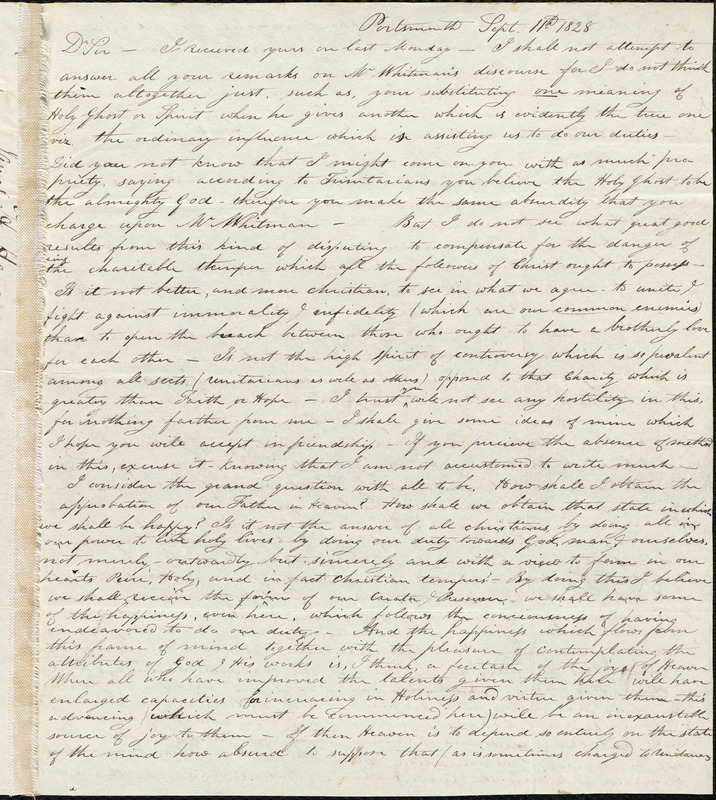 Portsmouth Sept. 11th 1828
Dr Sir — I received yours on last Monday — I shall not attempt to
answer all your remarks on Mr Whitman's discourse for I do not think
them altogether just, such as, your substituting one meaning of
Holy Ghost or Spirit when he gives another which is evidently the true one
viz. the ordinary influence which is assisting us to do our duties —
Did you not know that I might come on you with as much pro
priety, saying according to Trinitarians you believe the Holy Ghost to be
the almighty God - therefore you make the same absurdity that you
charge upon Mr Whitman — But I do not see what great good
results from this kind of disputing to compensate for the danger of
the charitable temper which all the followers of Christ ought to possess —
Is it not better, and more christian, to see in what we agree - to unite &
fight against immorality & infidelity (which are our common enemies)
than to open the breach between those who ought to have a brotherly love
for each other — Is not the high spirit of controversy which is so prevalent
among all sects (unitarians as well as others) opposed to that Charity which is
greater than Faith or Hope — I trust you will not see any hostility in this,
for nothing farther from me — I shall give some ideas of mine which
I hope you will accept in friendship — If you precieve the absence of method
in this, excuse it - knowing that I am not accustomed to write much —
I consider the grand question with all to be, How shall I obtain the
approbation of our Father in Heaven? How shall we obtain that state in which
we shall be happy? Is it not the answer of all christians, by doing all in
our power to live holy lives - by doing our duty towards God, man, & ourselves,
not merely outwardly but sincerely and with a view to form in our
hearts Pure, Holy, and in fact Christian tempers — By doing this I believe
we shall recieve the favor of our Creator & Preserver - we shall have some
of this happiness, even here, which follows the conciousness of having
endeavored to do our duty — And the happiness which flows from
this frame of mind together with the pleasure of contemplating the
attributes of God & His works is, I think, a foretaste of the joys of Heaven
Where all who have improved the talents given them here will have
enlarged capacities for increasing in Holiness and virtue given them - this
advancing (which must be commenced here) will be an inexaustible
source of joy to them — If then Heaven is to depend so entirely on the state
of the mind how absurd to suppose that (as is sometimes charged to Unitarians